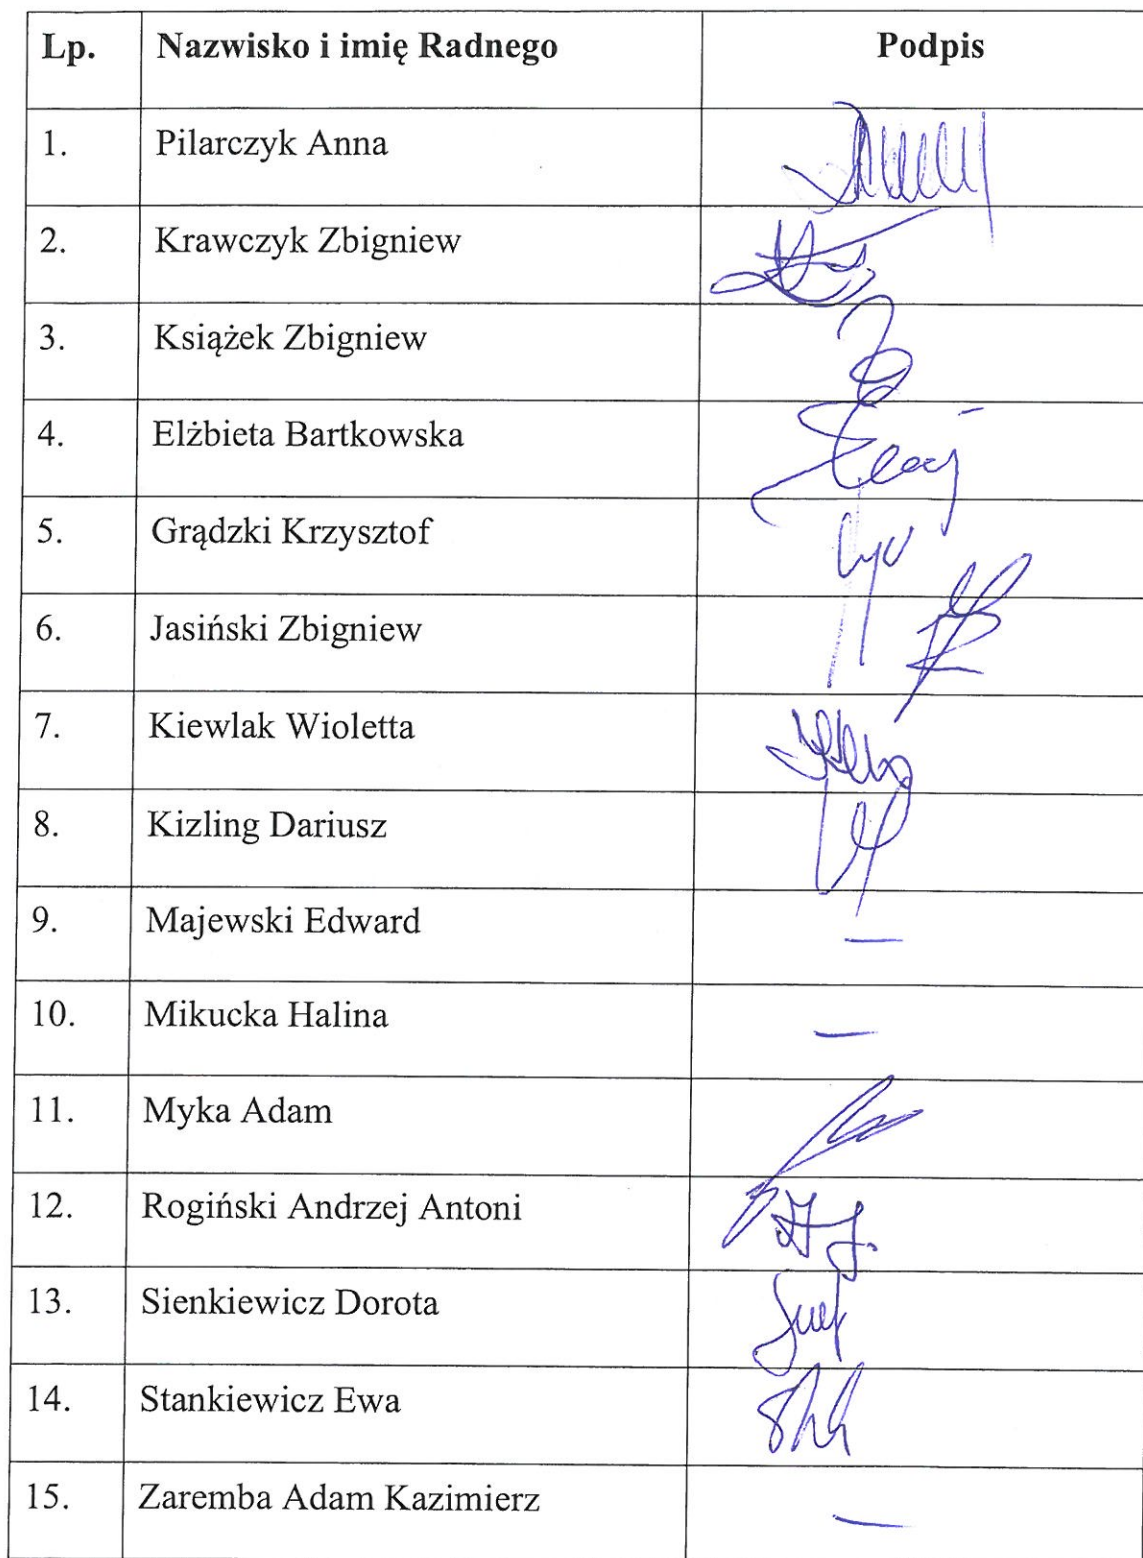 Lp. Nazwisko i imię Radnego Podpis
1. Pilarczyk Anna
2. Krawczyk Zbigniew
3. Książek Zbigniew
4. Elżbieta Bartkowska
5. Grądzki Krzysztof
6. Jasiński Zbigniew
7. Kiewlak Wioletta
8. Kizling Dariusz
9. Majewski Edward —
10. Mikucka Halina —
11. Myka Adam
12. Rogiński Andrzej Antoni
13. Sienkiewicz Dorota
14. Stankiewicz Ewa
15. Zaremba Adam Kazimierz —